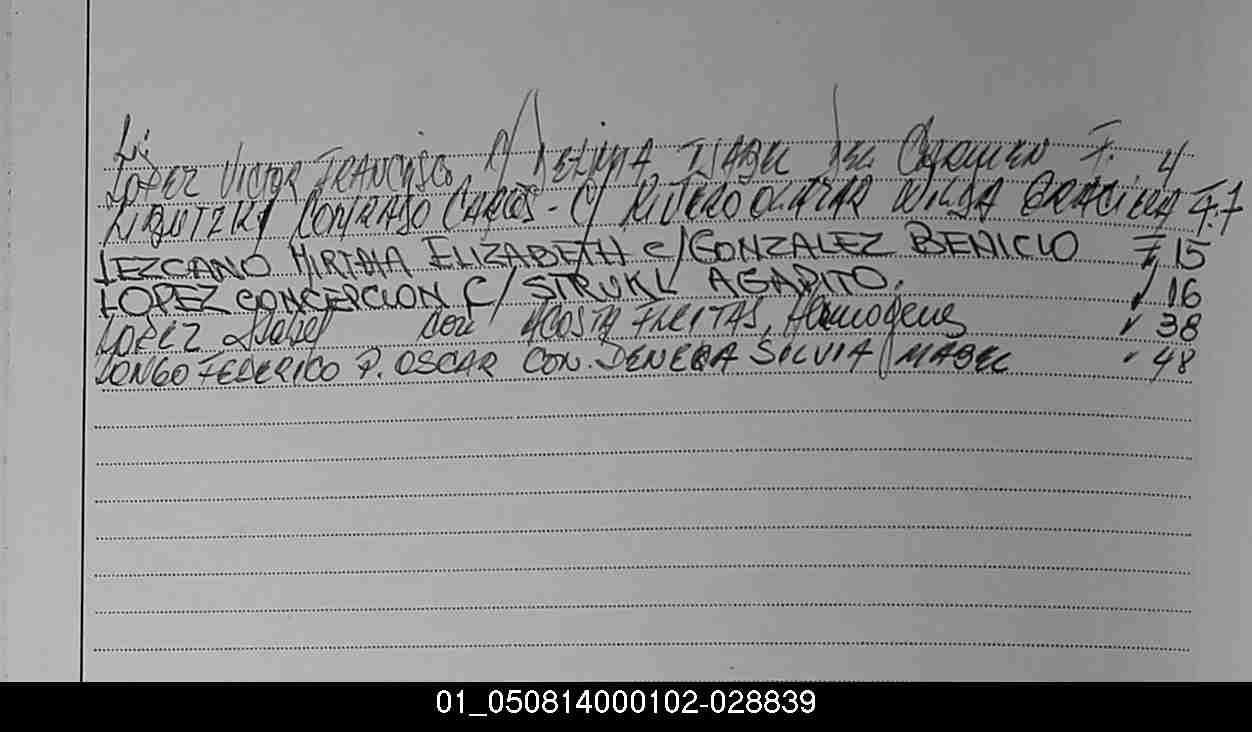 Li
LOPEZ VICTOR FRANCISCO C/ DELIMA ISABEL DEL CARMEN F. 4
CONRADO CARLOS - C/ RIVERO WILDA GRACIELA F. 7
LEZCANO MIRTHA ELIZABETH C/ GONZALEZ BENICIO F 15
LOPEZ CONCEPCION C/ STRUKL AGAPITO. " 16
LOPEZ Isabel con ACOSTA FREITAS, " 38
LONGO FEDERICO P. OSCAR CON. SILVIA MABEL " 48
01_050814000102-028839